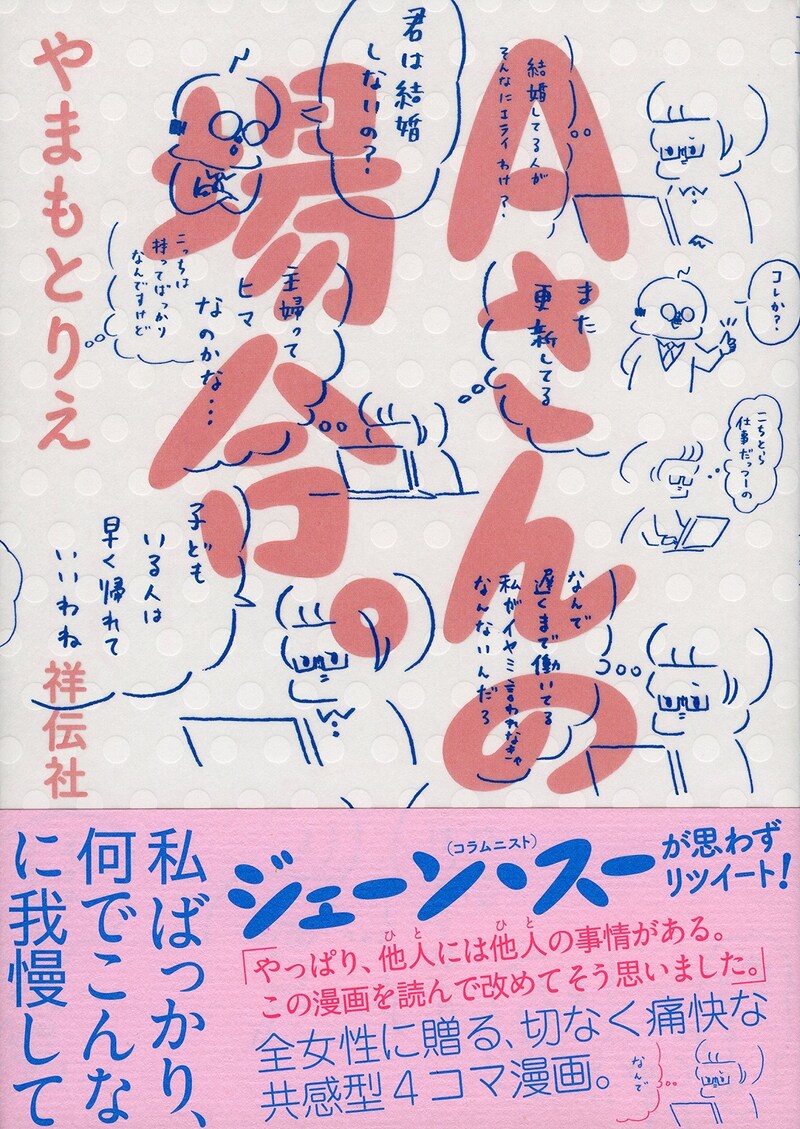 Aさんの
場合。
やまもとりえ
祥伝社
結婚してる人が
そんなにエライわけ？
君は結婚
しないの？
コレか？
また
更新してる
主婦って
ヒマ
なのかな…
こっちは
持ってばっかり
なんですけど
こちとら
仕事だっつーの
子ども
いる人は
早く帰れて
いいわね
なんで
遅くまで働いてる
私がイヤミ言われなきゃ
なんないんだろ
(コラムニスト)
ジェーン・スーが思わず
リツイート！
「やっぱり、他人には他人の事情がある。
ひと ひと
この漫画を読んで改めてそう思いました。」
全女性に贈る、切なく痛快な
共感型4コマ漫画。
なんで
私ばっかり、
何でこんな
に我慢して